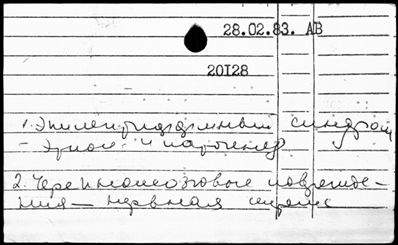 28.02.83. АВ
20128
1. Эпилептиформный синдром
- этиол. и патогенез
2. Черепномозговые поврежде-
ния - нервная